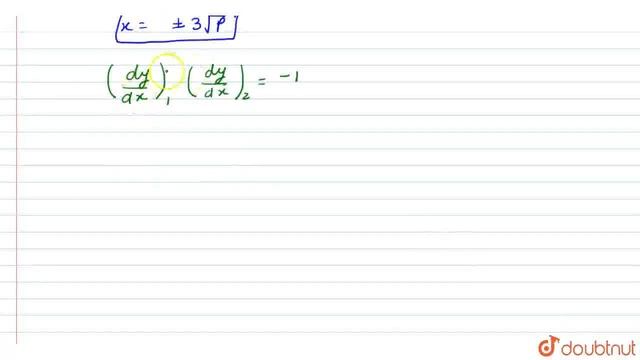 x = ± 3√P
(dy/dx)₁ · (dy/dx)₂ = -1
doubtnut